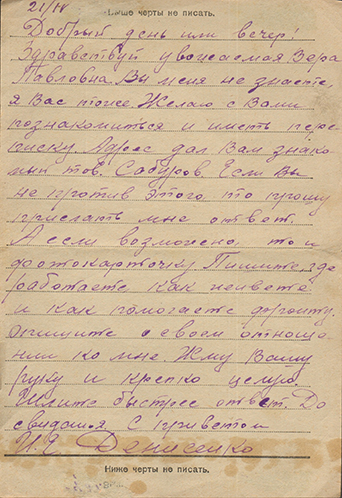 21/IV
Выше черты не писать.
Добрый день или вечер!
Здравствуй уважаемая Вера
Павловна. Вы меня не знаете,
я Вас тоже. Желаю с Вами
познакомиться и иметь пере
писку. Адрес дал Вам знако
мый тов. Сабуров. Если Вы
не против этого, то прошу
прислать мне ответ.
А если возможно, то и
фотокарточку. Пишите, где
работаете как живете
и как помогаете фронту.
Опишите о своем отноше
нии ко мне. Жму Вашу
руку и крепко целую.
Шлите быстрее ответ. До
свиданья С приветом
Денисенко
Ниже черты не писать.